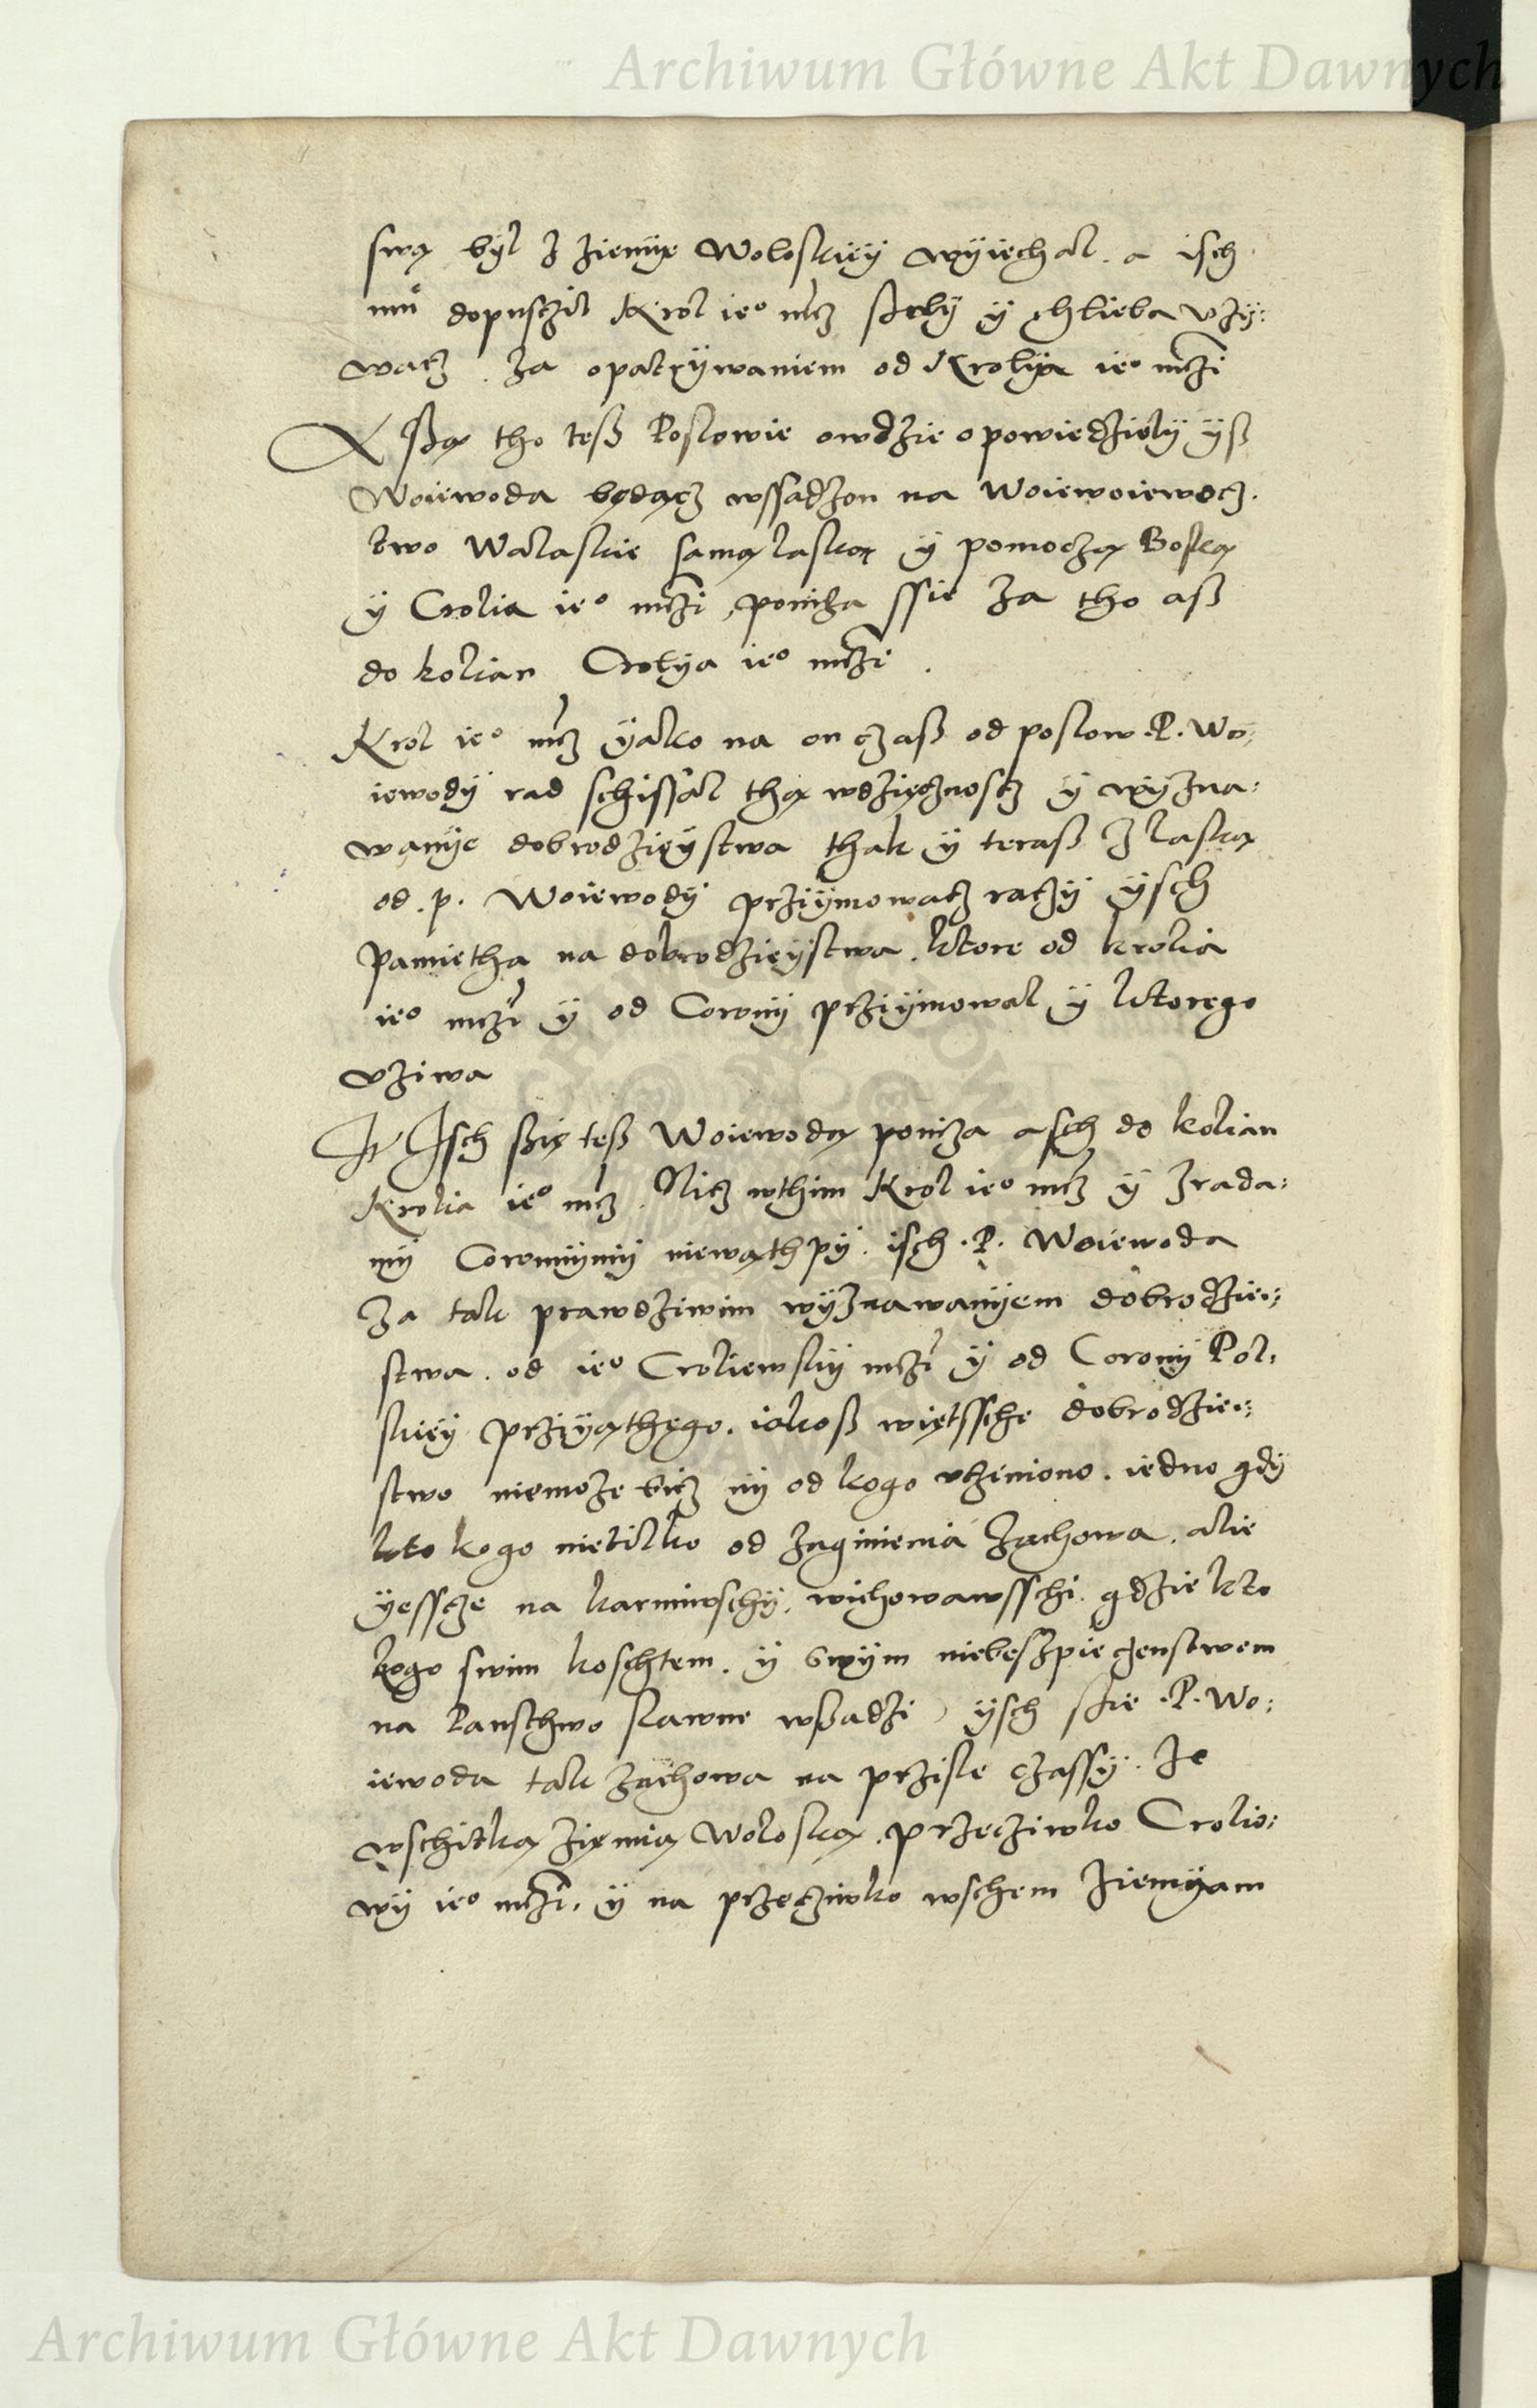 Archiwum Główne Akt Dawnych
swą był z ziemye Woloskiey wyiechal. a isch
mu dopusczil Krol ieo mcz skely y chlieba vzy:
wacz. za opatrzywaniem od Krolya ieo mczi
A ßą tho teß Poslowie owdzie opowiedziely yß
Woiewoda będącz wssadzon na Woiewoiewocz.
two Walaskie samą laską y pomoczą Boską
y Crolia ieo mczi, poniza ssie za tho aß
do kolian Crolya ieo mczi.
Krol ieo mcz yako na on czaß od poslow .P. Wo:
iewody rad schissal thą wdzięcznoscz y wyzna:
wanye dobrodzieystwa thak y teraß z laską
od .p. Woiewody prziymowacz raczy ysch
pamietha na dobrodzieystwa. ktore od krolia
ieo mczi y od Corony prziymowal y ktorego
vziwa
Isch ßię teß Woiewoda poniza asch do kolian
Krolia ieo mcz. Nicz wthim Krol ieo mcz y zrada:
my Coronnymy niewąthpy. isch .P. Woiewoda
za tak prawdziwim wyznawanyem dobrodziei:
stwa. od ieo Croliewsky mczi y od Corony Pol:
skiey prziyąthego. iakoß więtssche dobrodziei:
stwo niemoze bicz ny od kogo vcziniono. iedno gdy
kto kogo nietilko od zaginienia zachowa. alie
yesscze na karmiwschy. wichowawsschi. gdzie kto
kogo swim koschtem. y swym niebeszpieczenstwem
na Panschwo slawne wßadzi, ysch ssie .P. Wo:
iewoda tak zachowa na prziсle czassy. Ze
wschitką ziemią Woloską. przecziwko Crolio:
wy ieo mczi. y na przecziwko wschem ziemyam
Archiwum Główne Akt Dawnych